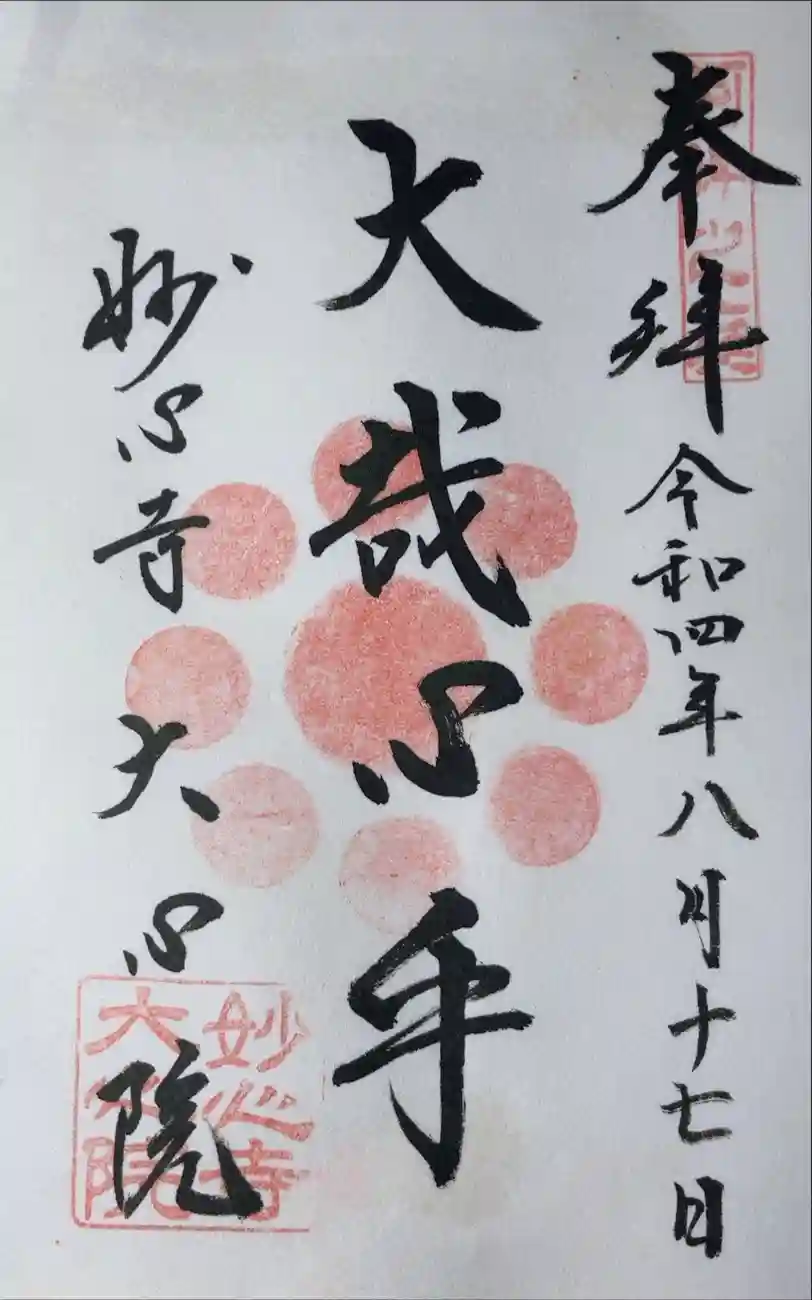 奉拜 令和四年八月十七日
大哉心乎
妙心寺 大心院
妙心寺
大心院